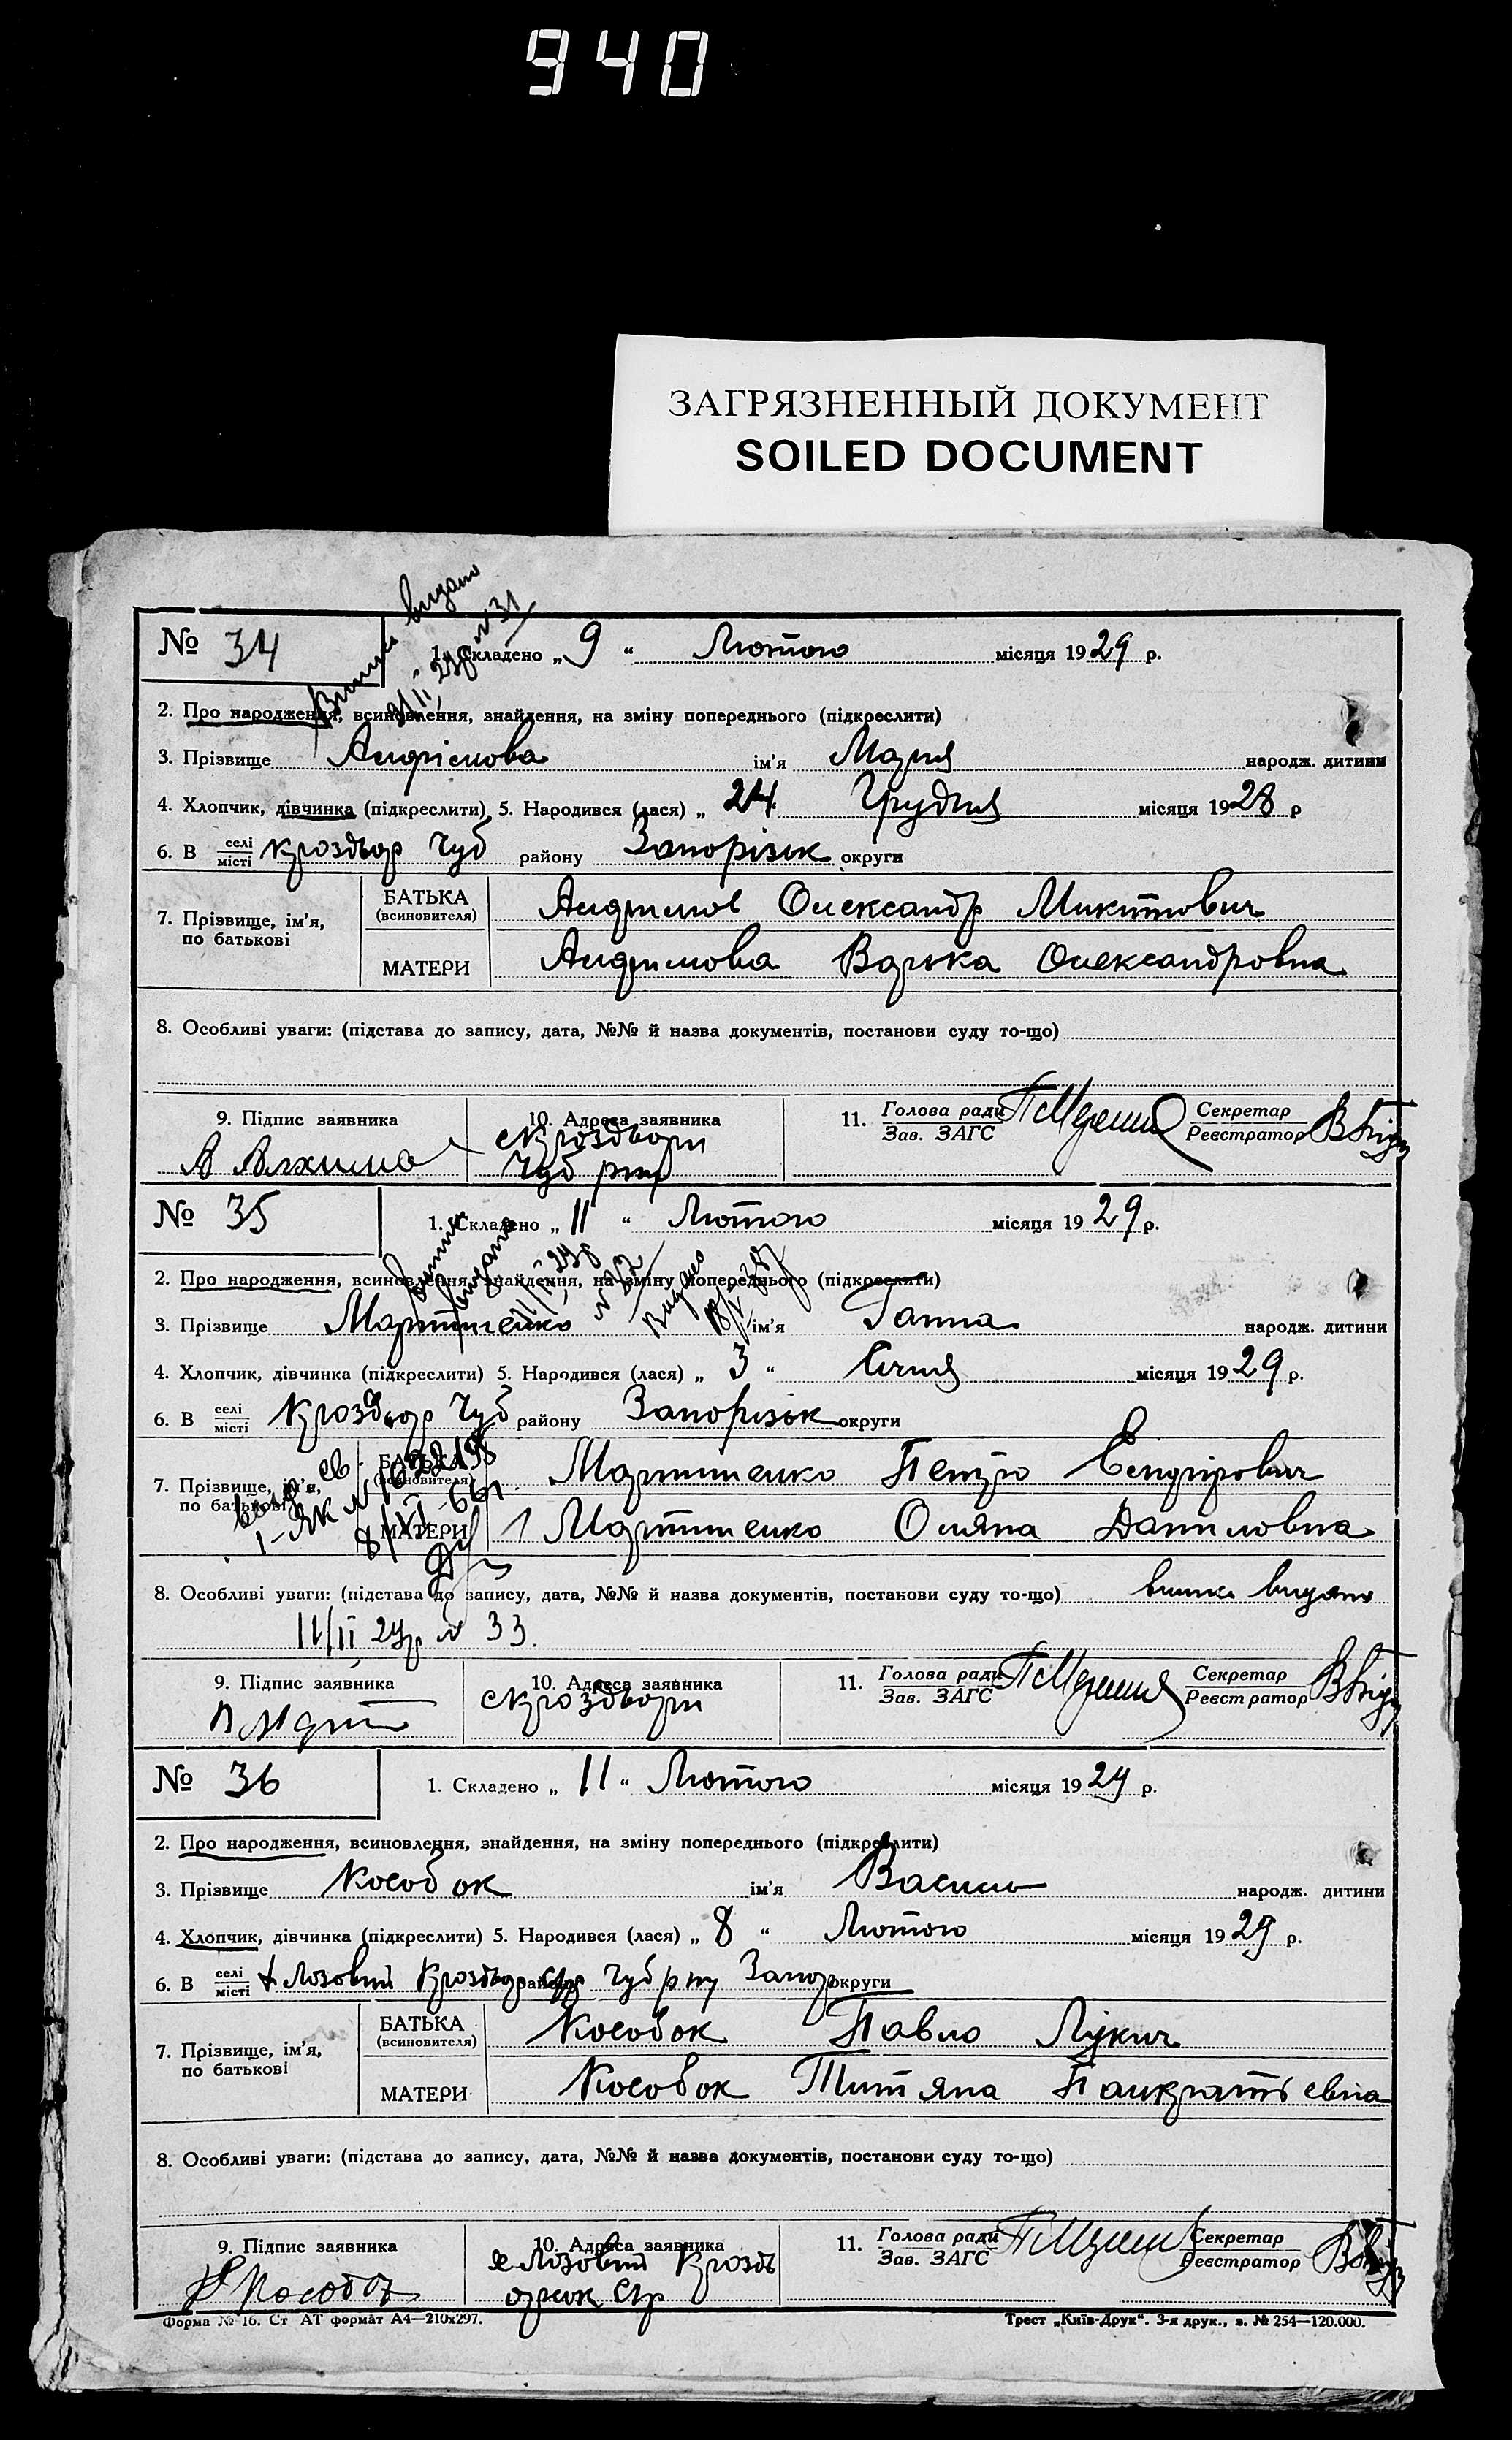 940
ЗАГРЯЗНЕННЫЙ ДОКУМЕНТ
SOILED DOCUMENT
видано
№ 31
№ 34
1. Складено „ 9 “ Лютого місяця 1929 р.
2. Про народження, всиновлення, знайдення, на зміну попереднього (підкреслити)
3. Прізвище ім'я Мария народж. дитини
4. Хлопчик, дівчинка (підкреслити) 5. Народився (лася) „ 24 Грудня місяця 1928 р
6. В селі місті Чуб району Запорізьк округи
7. Прізвище, ім'я, по батькові
БАТЬКА (всиновителя) Олександр Микитович
МАТЕРИ Варька Олександровна
8. Особливі уваги: (підстава до запису, дата, №№ й назва документів, постанови суду то-що)
9. Підпис заявника 10. Адреса заявника 11. Голова ради Зав. ЗАГС Секретар Реєстратор
Чуб
№ 35
1. Складено „ 11 “ Лютого місяця 1929 р.
2. Про народження, всиновлення, знайдення, на зміну попереднього (підкреслити)
видано
№ 32
Видано
3. Прізвище Мартиненко ім'я Ганна народж. дитини
4. Хлопчик, дівчинка (підкреслити) 5. Народився (лася) „ 3 “ Січня місяця 1929 р.
6. В селі місті Чуб району Запорізьк округи
7. Прізвище, ім'я, по батькові
БАТЬКА (всиновителя) Мартиненко Петро
МАТЕРИ Мартиненко Оляна Даниловна
8/VI-66
8. Особливі уваги: (підстава до запису, дата, №№ й назва документів, постакови суду то-що) видано
11/II 29р № 33.
9. Підпис заявника 10. Адреса заявника 11. Голова ради Зав. ЗАГС Секретар Реєстратор
№ 36
1. Складено „ 11 “ Лютого місяця 1929 р.
2. Про народження, всиновлення, знайдення, на зміну попереднього (підкреслити)
3. Прізвище Кособок ім'я Василь народж. дитини
4. Хлопчик, дівчинка (підкреслити) 5. Народився (лася) „ 8 “ Лютого місяця 1929 р.
6. В селі місті х Лозовий району Чуб р ну Запор округи
7. Прізвище, ім'я, по батькові
БАТЬКА (всиновителя) Кособок Павло Лукич
МАТЕРИ Кособок Титяна Панкратьевна
8. Особливі уваги: (підстава до запису, дата, №№ й назва документів, постанови суду то-що)
9. Підпис заявника 10. Адреса заявника 11. Голова ради Зав. ЗАГС Секретар Реєстратор
Лозовий
Форма № 16. Ст АТ формат А4—210х297.
Трест „Київ-Друк“. 3-я друк., з. № 254—120.000.